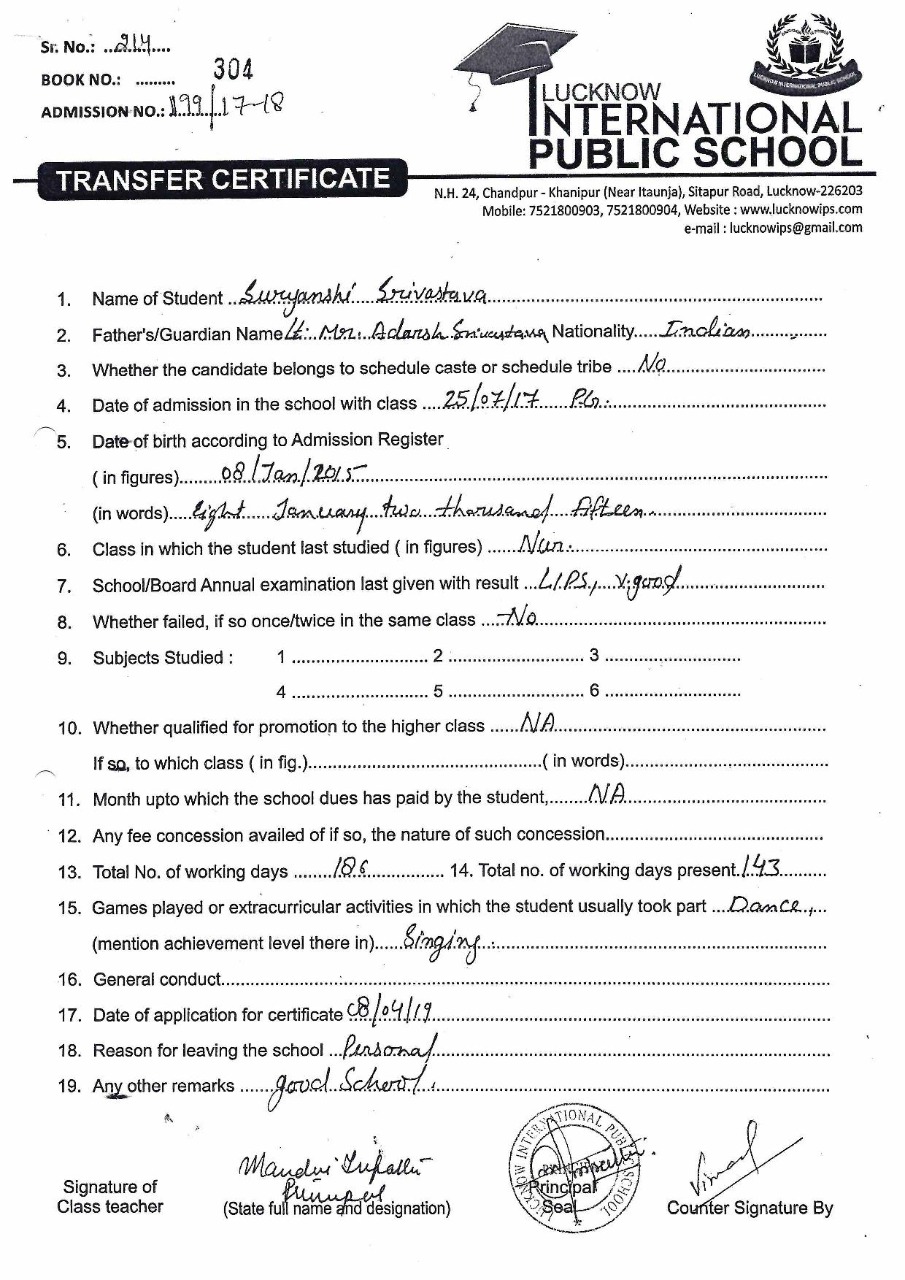 Sr. No.: ..214....
BOOK NO.: ......... 304
ADMISSION NO.: 199/17-18
LUCKNOW
INTERNATIONAL
PUBLIC SCHOOL
LUCKNOW INTERNATIONAL PUBLIC SCHOOL
TRANSFER CERTIFICATE
N.H. 24, Chandpur - Khanipur (Near Itaunja), Sitapur Road, Lucknow-226203
Mobile: 7521800903, 7521800904, Website : www.lucknowips.com
e-mail : lucknowips@gmail.com
1. Name of Student .. Suryanshi Srivastava
2. Father's/Guardian Name Lt. Mr. Adarsh Srivastava Nationality..... Indian
3. Whether the candidate belongs to schedule caste or schedule tribe .... No
4. Date of admission in the school with class .... 25/07/17 P.G.
5. Date of birth according to Admission Register
( in figures)........ 08/Jan/2015
(in words).... Eight January two thousand fifteen.
6. Class in which the student last studied ( in figures) ...... Nur.
7. School/Board Annual examination last given with result ... L.I.P.S., V.good
8. Whether failed, if so once/twice in the same class .... No
9. Subjects Studied : 1 ............................ 2 ............................ 3 ............................
4 ............................ 5 ............................ 6 ............................
10. Whether qualified for promotion to the higher class ...... NA
If so, to which class ( in fig.)................................................( in words)..........................................
11. Month upto which the school dues has paid by the student,........ NA
12. Any fee concession availed of if so, the nature of such concession............................................
13. Total No. of working days ........ 186 ................ 14. Total no. of working days present. 143
15. Games played or extracurricular activities in which the student usually took part ... Dance,
(mention achievement level there in)..... Singing.
16. General conduct............................................
17. Date of application for certificate 08/04/19
18. Reason for leaving the school ... Personal
19. Any other remarks ...... good School.
Principal
Signature of
Class teacher
(State full name and designation)
LUCKNOW INTERNATIONAL PUBLIC SCHOOL
Principal
Seal
Vimal
Counter Signature By